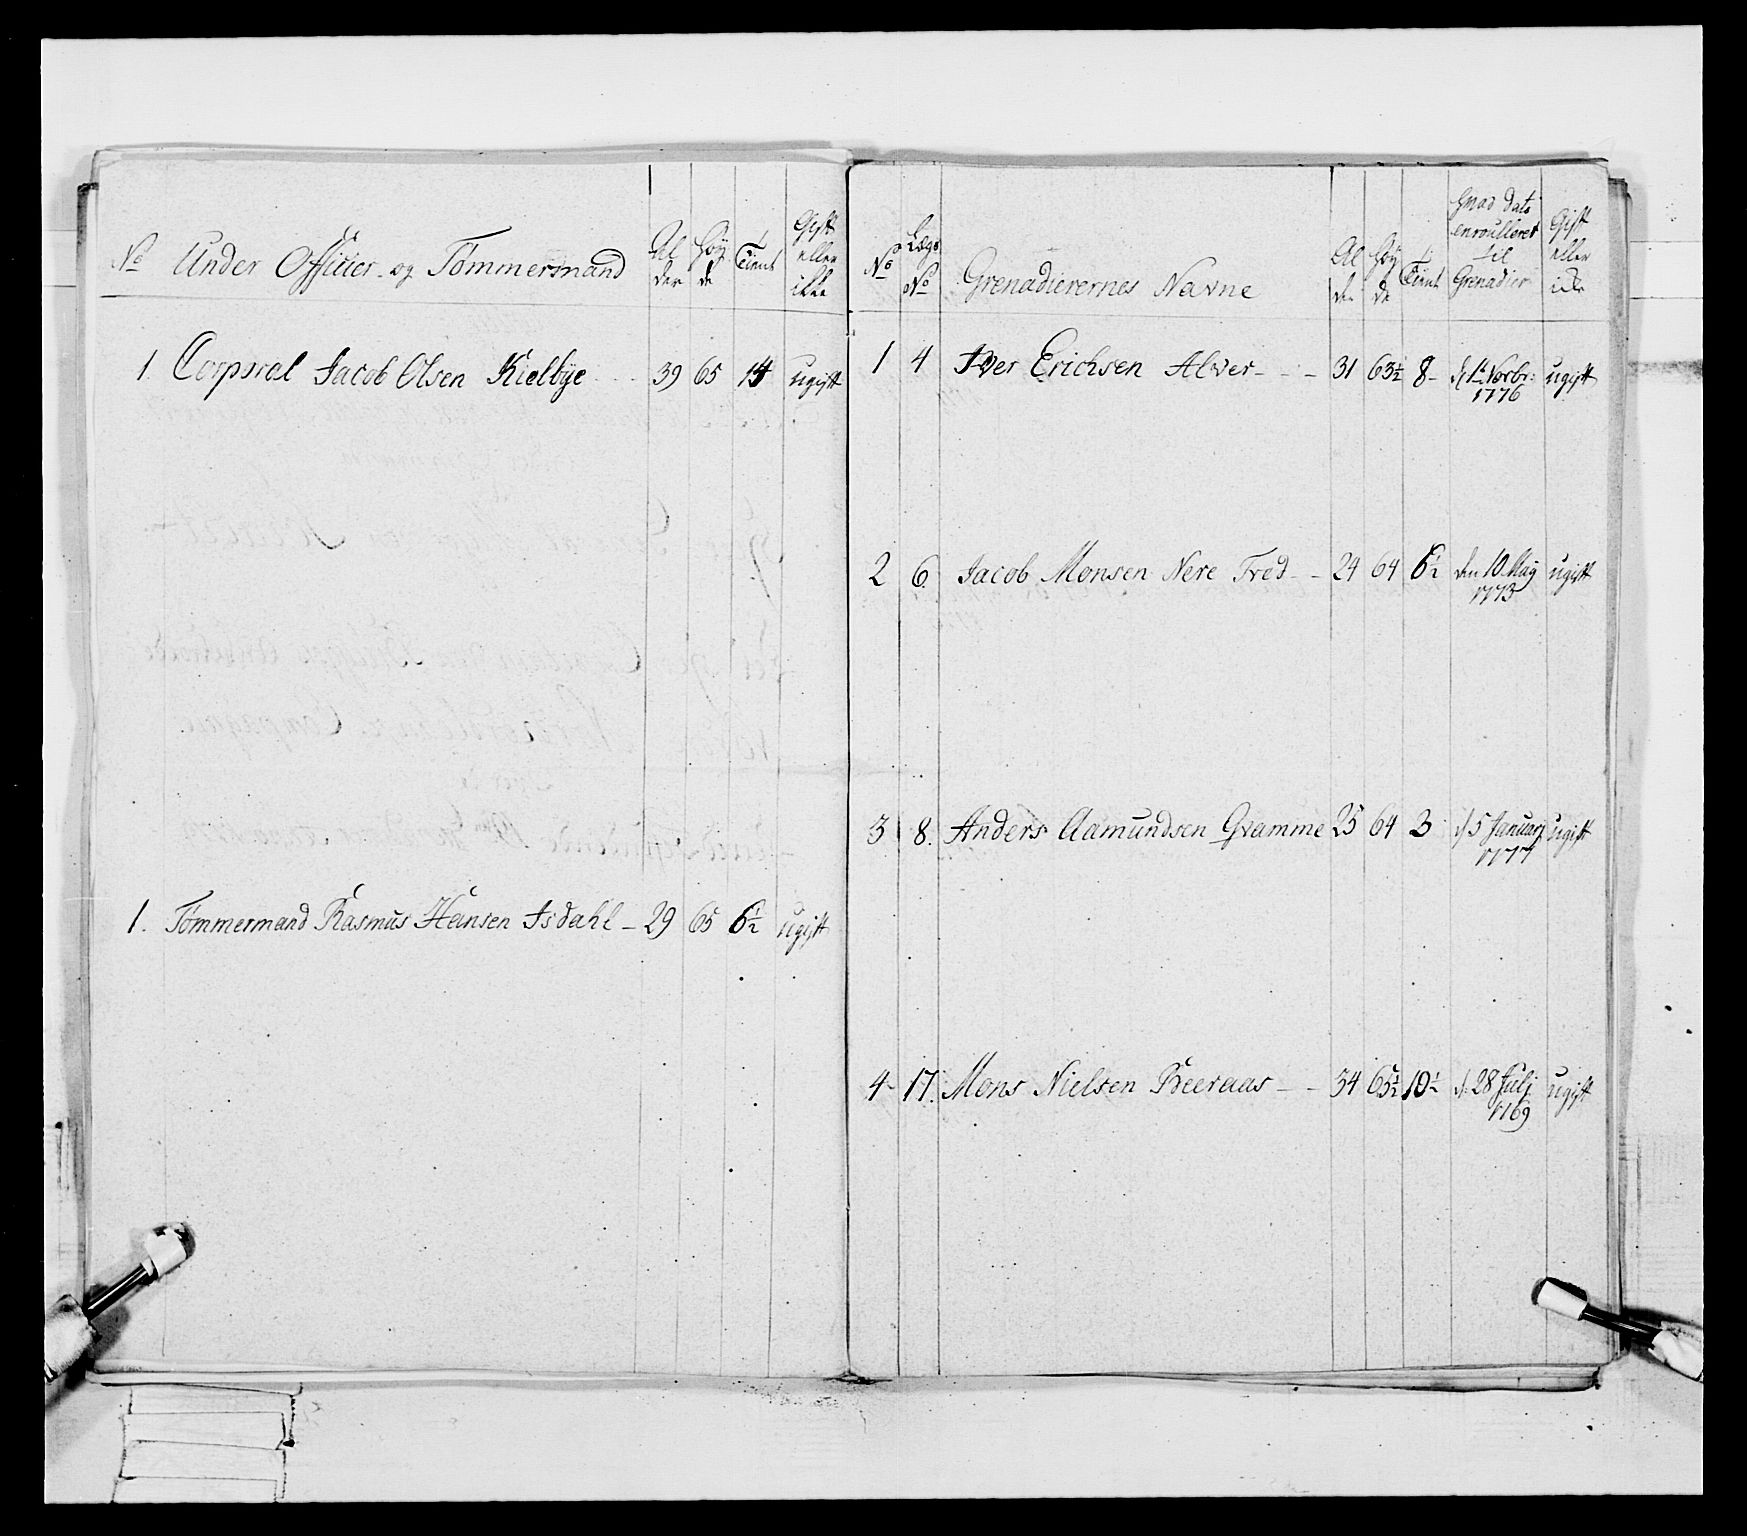 No Under Officier og Tømmermænd Al der Høy de Tient Gift eller ikke
1 Corporal Jacob Olsen Kielbye 39 65 14 ugift
1. Tømmermand Rasmus Hansen Isdahl 29 65 6½ ugift
No Lægs No Grenadierernes Navne Al der Høy de Tient Hvad Dato enroulleret til Grenadier Gift eller
1 4 Iver Erichsen Alver 31 63½ 8 d 1te Novbr: 1776 ugift
2 6 Jacob Monsen Nere Tved 24 64 6½ den 10 May 1773 ugift
3 8. Anders Aamundsen Gramme 25 64 3 d 5 Januarj 1777 ugift
4 17. Mons Nielsen Beeraas 34 65½ 10½ d: 28 Julj 1769 ugift